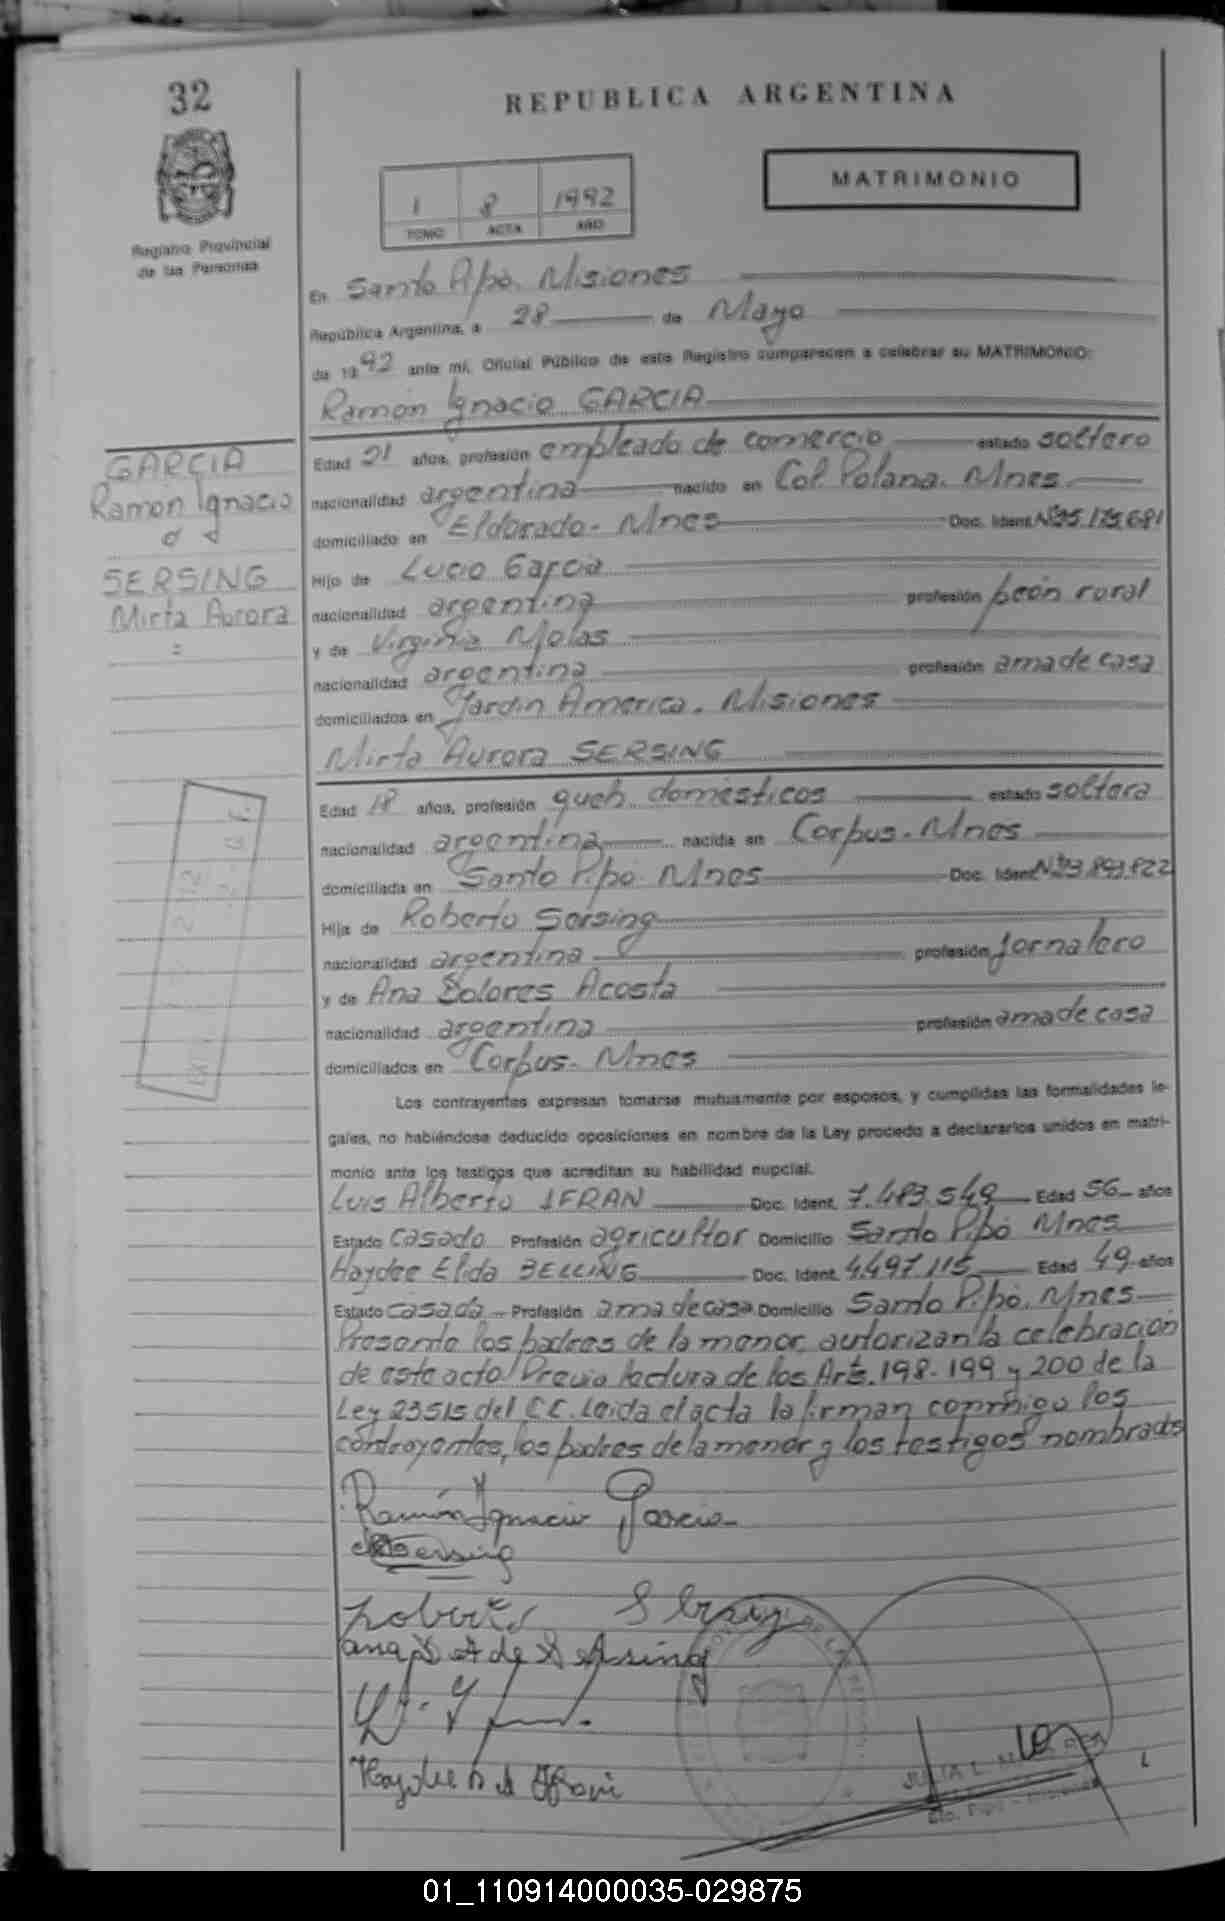 32
REPUBLICA ARGENTINA
MATRIMONIO
1 8 1992
TOMO ACTA AÑO
Registro Provincial
de las Personas
En Santo Pipó. Misiones
República Argentina, a 28 de Mayo
de 1992 ante mí, Oficial Público de este Registro comparecen a celebrar su MATRIMONIO:
Ramón Ignacio GARCIA
GARCIA
Ramon Ignacio
SERSING
Mirta Aurora
=
Edad 21 años, profesión empleado de comercio estado soltero
nacionalidad argentina nacido en Col. Polana. Mnes
domiciliado en Eldorado - Mnes Doc. Ident.
Hijo de Lucio Garcia
nacionalidad argentina profesión peón rural
y de Virginia Molas
nacionalidad argentina profesión ama de casa
domiciliados en Jardin America. Misiones
Mirta Aurora SERSING
Edad 18 años, profesión queh. domésticos estado soltera
nacionalidad argentina nacida en Corpus. Mnes
domiciliada en Santo Pipó. Mnes Doc. Ident.
Hija de Roberto Sersing
nacionalidad argentina profesión jornalero
y de Ana Dolores Acosta
nacionalidad argentina profesión ama de casa
domiciliados en Corpus - Mnes
Los contrayentes expresan tomarse mutuamente por esposos, y cumplidas las formalidades le-
gales, no habiéndose deducido oposiciones en nombre de la Ley procedo a declararlos unidos en matri-
monio ante los testigos que acreditan su habilidad nupcial.
Luis Alberto IFRAN Doc. Ident. 7.483.549 Edad 56 años
Estado casado Profesión agricultor Domicilio Santo Pipó Mnes
Haydee Elida BELLING Doc. Ident. 4.497.115 Edad 49 años
Estado casada Profesión ama de casa Domicilio Santo Pipó. Mnes
Presente los padres de la menor, autorizan la celebración
de este acto. Previa lectura de los Arts. 198-199 y 200 de la
Ley 23515 del C.C. Leida el acta la firman conmigo los
contrayentes, los padres de la menor y los testigos nombrads
Ramón Ignacio Garcia
Sersing
Roberto Sersing
ana D A de Sersing
JULIA L.
Sto. Pipó - Misiones
01_110914000035-029875